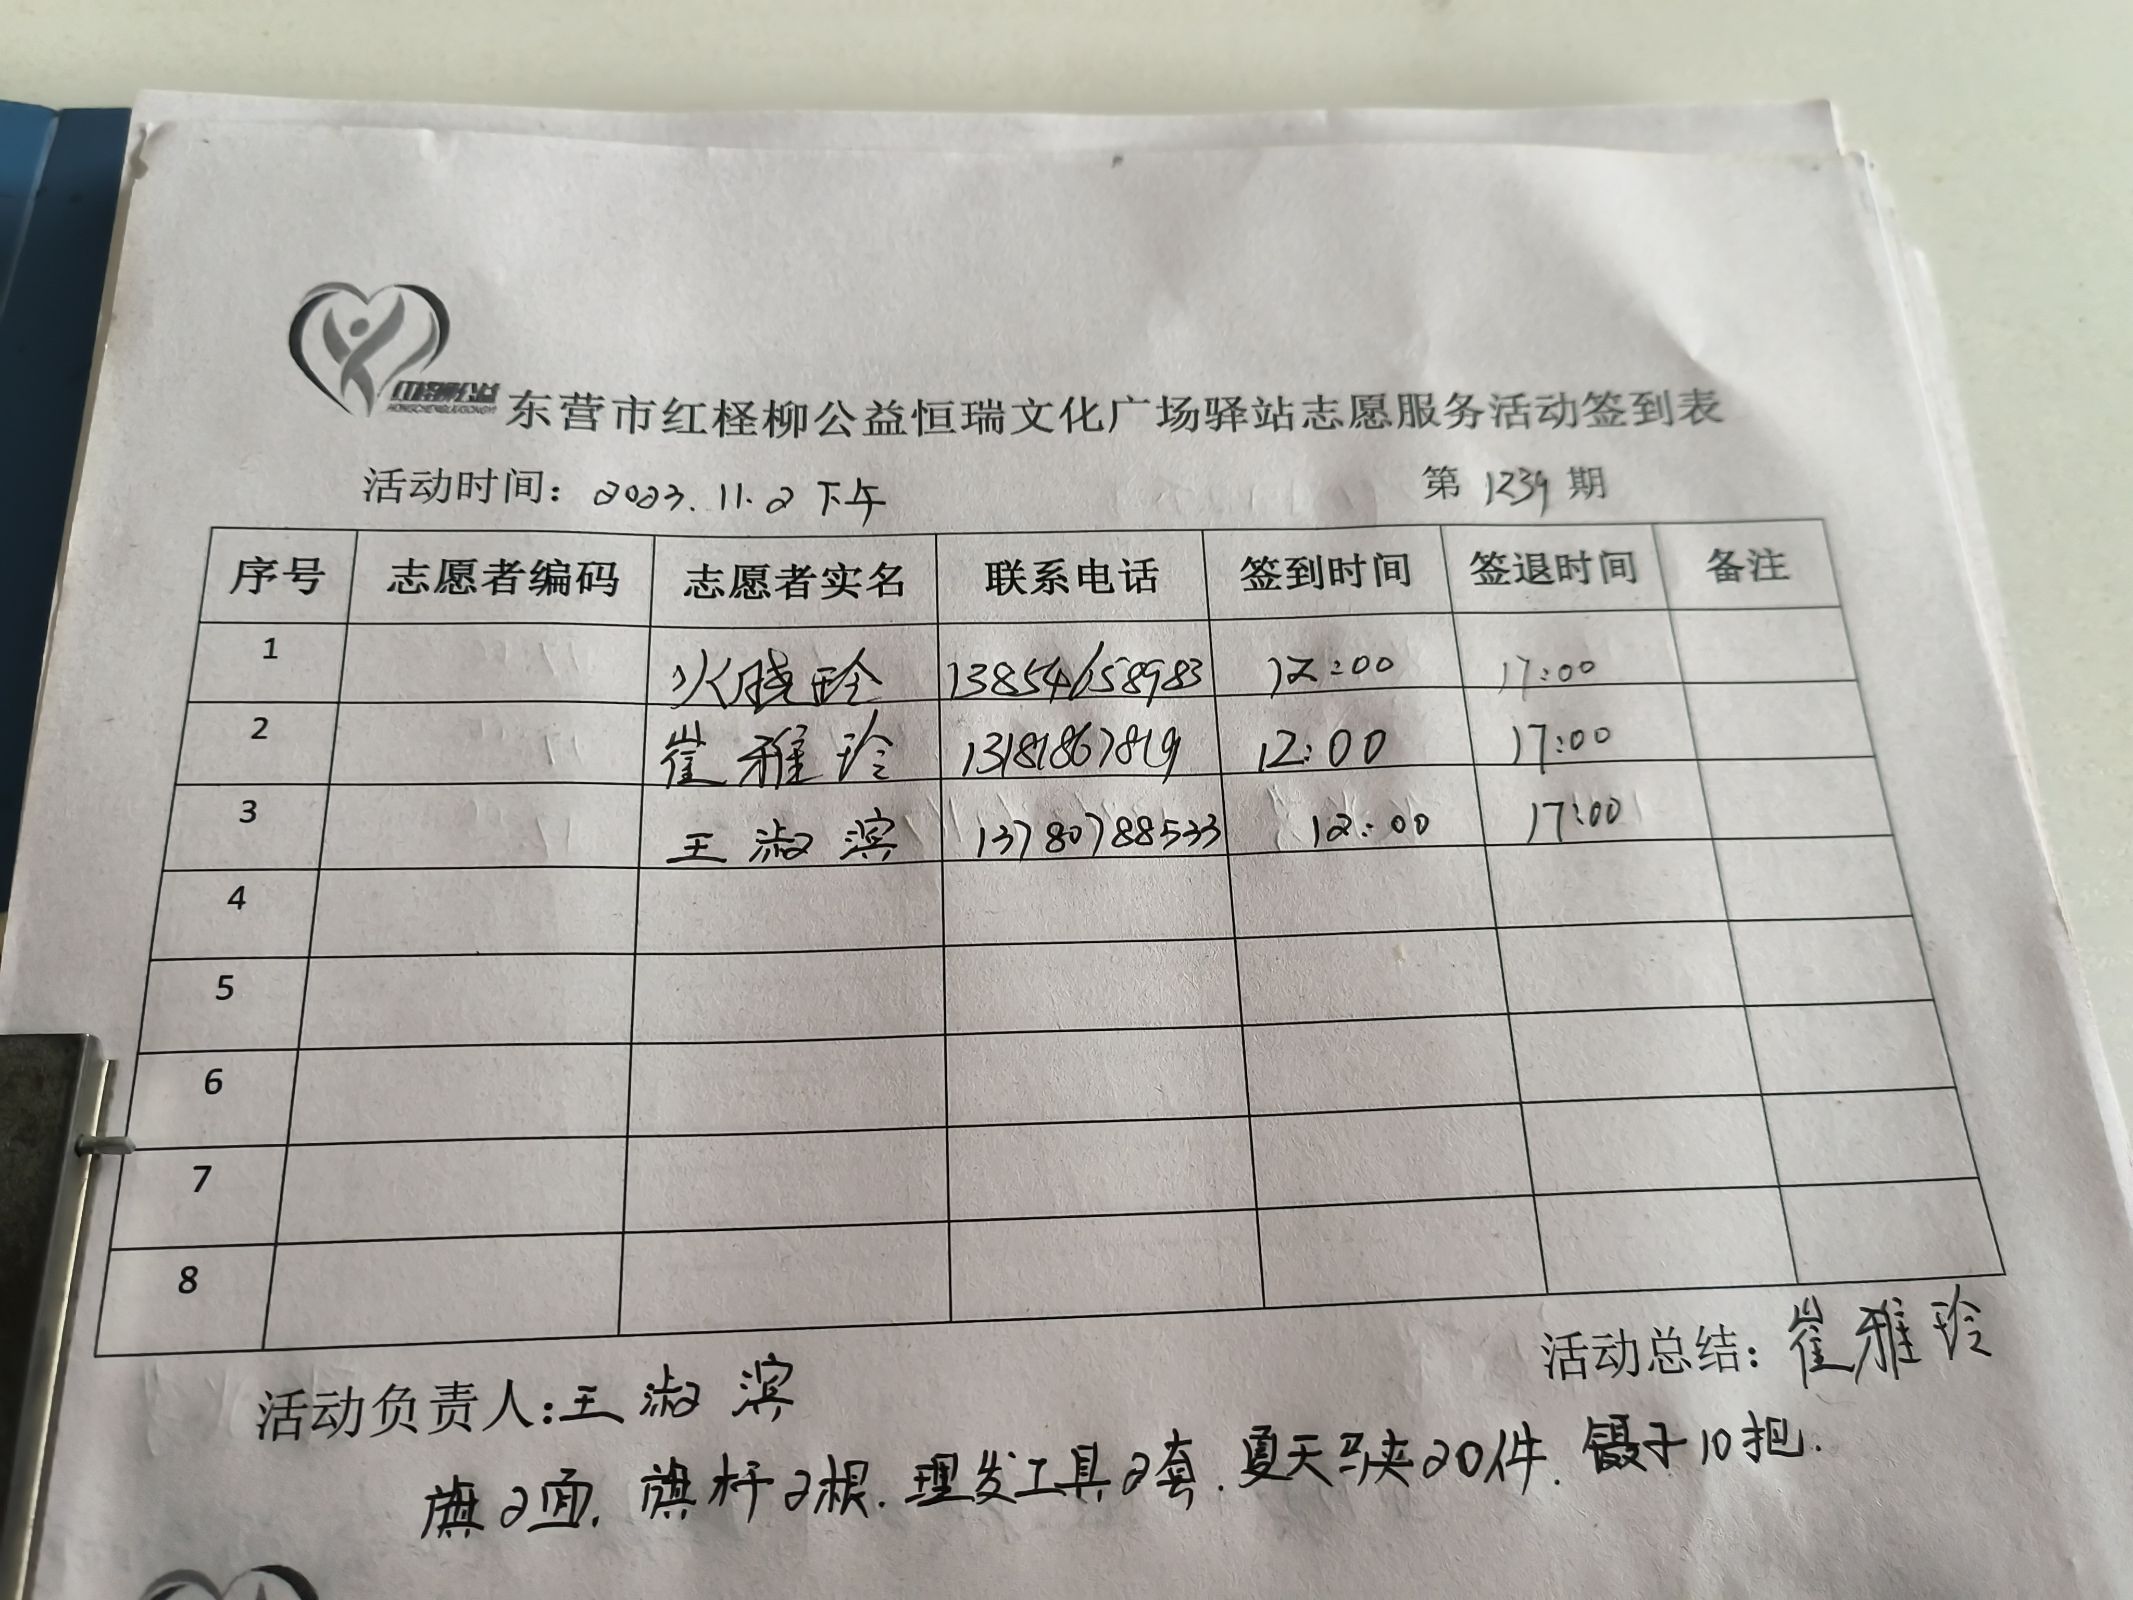 红柽柳公益
HONGCHENGLIUGONGYI
东营市红柽柳公益恒瑞文化广场驿站志愿服务活动签到表
活动时间：2023.11.2下午 第1239期
序号 志愿者编码 志愿者实名 联系电话 签到时间 签退时间 备注
1 晓玲 13854658983 12:00 17:00
2 崔雅玲 13181867819 12:00 17:00
3 王淑滨 13780788533 12:00 17:00
4
5
6
7
8
活动负责人：王淑滨 活动总结：崔雅玲
旗2面．旗杆2根．理发工具2套．夏天马夹20件．镊子10把．